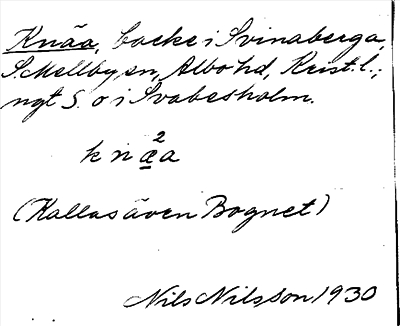 Knäa, backe i Svinaberga,
S. Mellby sn, Albo hd, Krist. l.;
ngt S. o i Svabesholm.
2
k n æ a
(Kallas även Bognet)
Nils Nilsson 1930